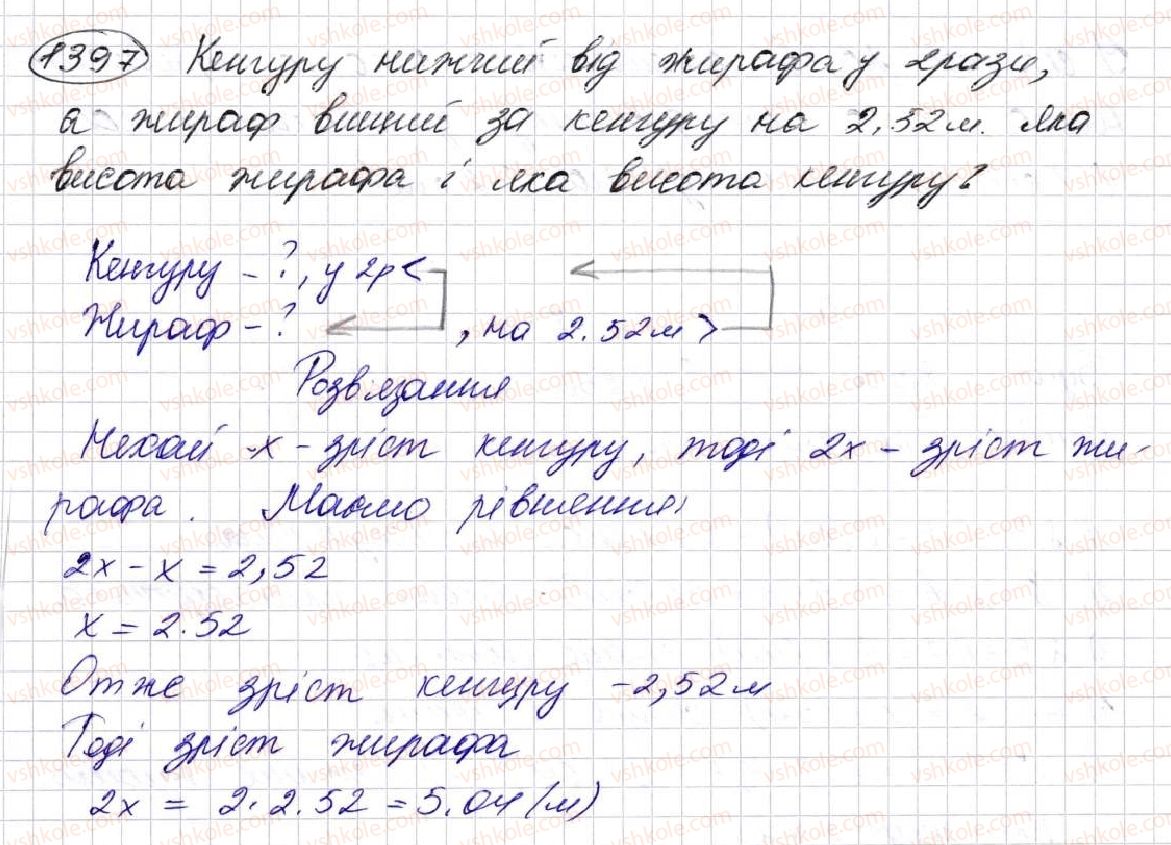 1397 Кенгуру нижчий від жирафа у 2 рази,
а жираф вищий за кенгуру на 2,52 м. Яка
висота жирафа і яка висота кенгуру?
Кенгуру - ?, у 2р <
Жираф - ? , на 2.52 м >
Розв'язання
Нехай x - зріст кенгуру, тоді 2x - зріст жи-
рафа. Маємо рівняння
2x - x = 2,52
x = 2.52
Отже зріст кенгуру - 2,52 м
Тоді зріст жирафа
2x = 2 · 2.52 = 5.04 (м)